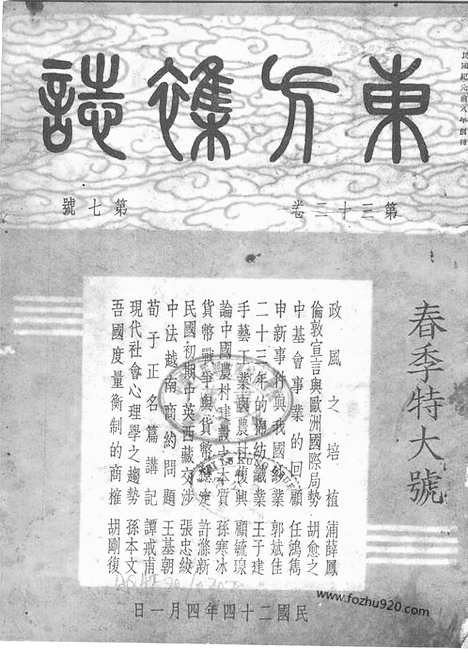 民國紀元前八年創刊
東方雜誌
第三十二卷 第七號
春季特大號
政風之培植 浦薛鳳
倫敦宣言與歐洲國際局勢 胡愈之
中基會事業的回顧 任鴻雋
申新事件與我國紗業 郭斌佳
二十三年的棉紡織業 王子建
手藝工業與農村復興 顧毓瑔
論中國農村建設之本質 孫寒冰
貨幣戰爭與貨幣穩定 許滌新
民國初期中英西藏交涉 張忠紱
中法越南商約問題 王基朝
荀子正名篇講記 譚戒甫
現代社會心理學之趨勢 孫本文
吾國度量衡制的商榷 胡剛復
民國二十四年四月一日
www.fozhu920.com